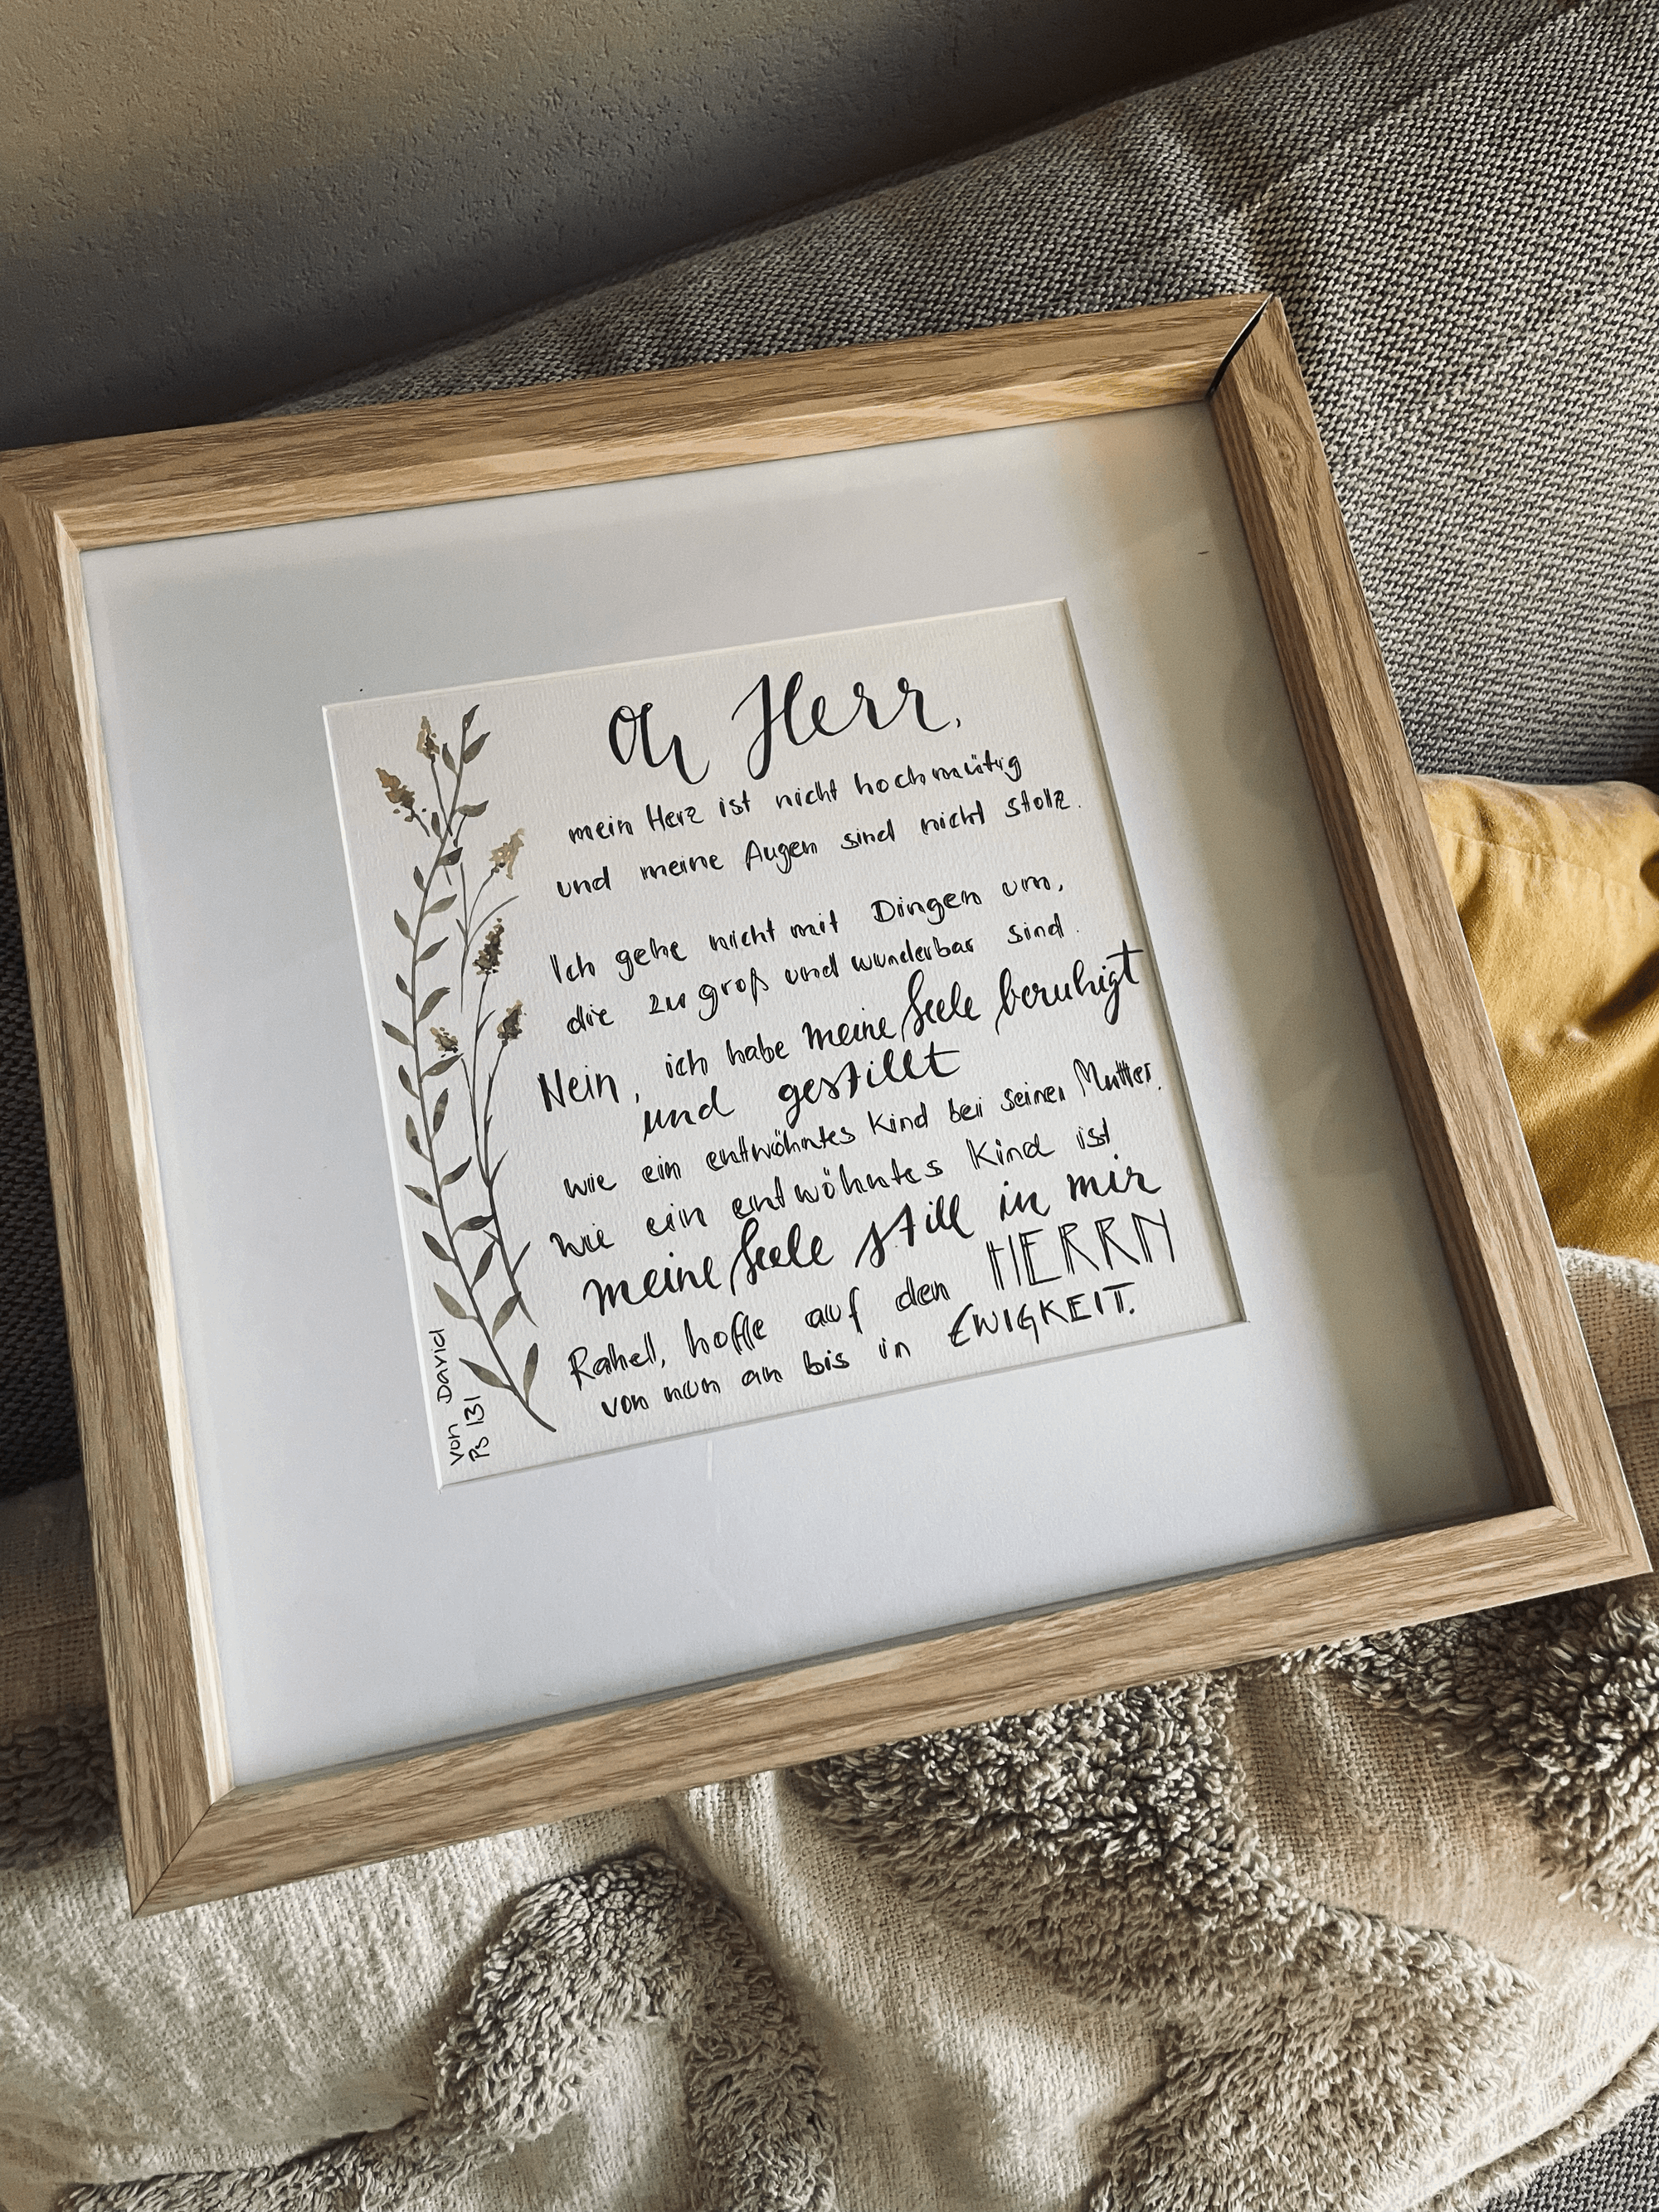 Oh Herr,
mein Herz ist nicht hochmütig
und meine Augen sind nicht stolz.
Ich gehe nicht mit Dingen um,
die zu groß und wunderbar sind.
Nein, ich habe meine Seele beruhigt
und gestillt
wie ein entwöhntes Kind bei seiner Mutter.
Wie ein entwöhntes Kind ist
meine Seele still in mir
Rahel, hoffe auf den HERRN
von nun an bis in EWIGKEIT.
von David
Ps 131